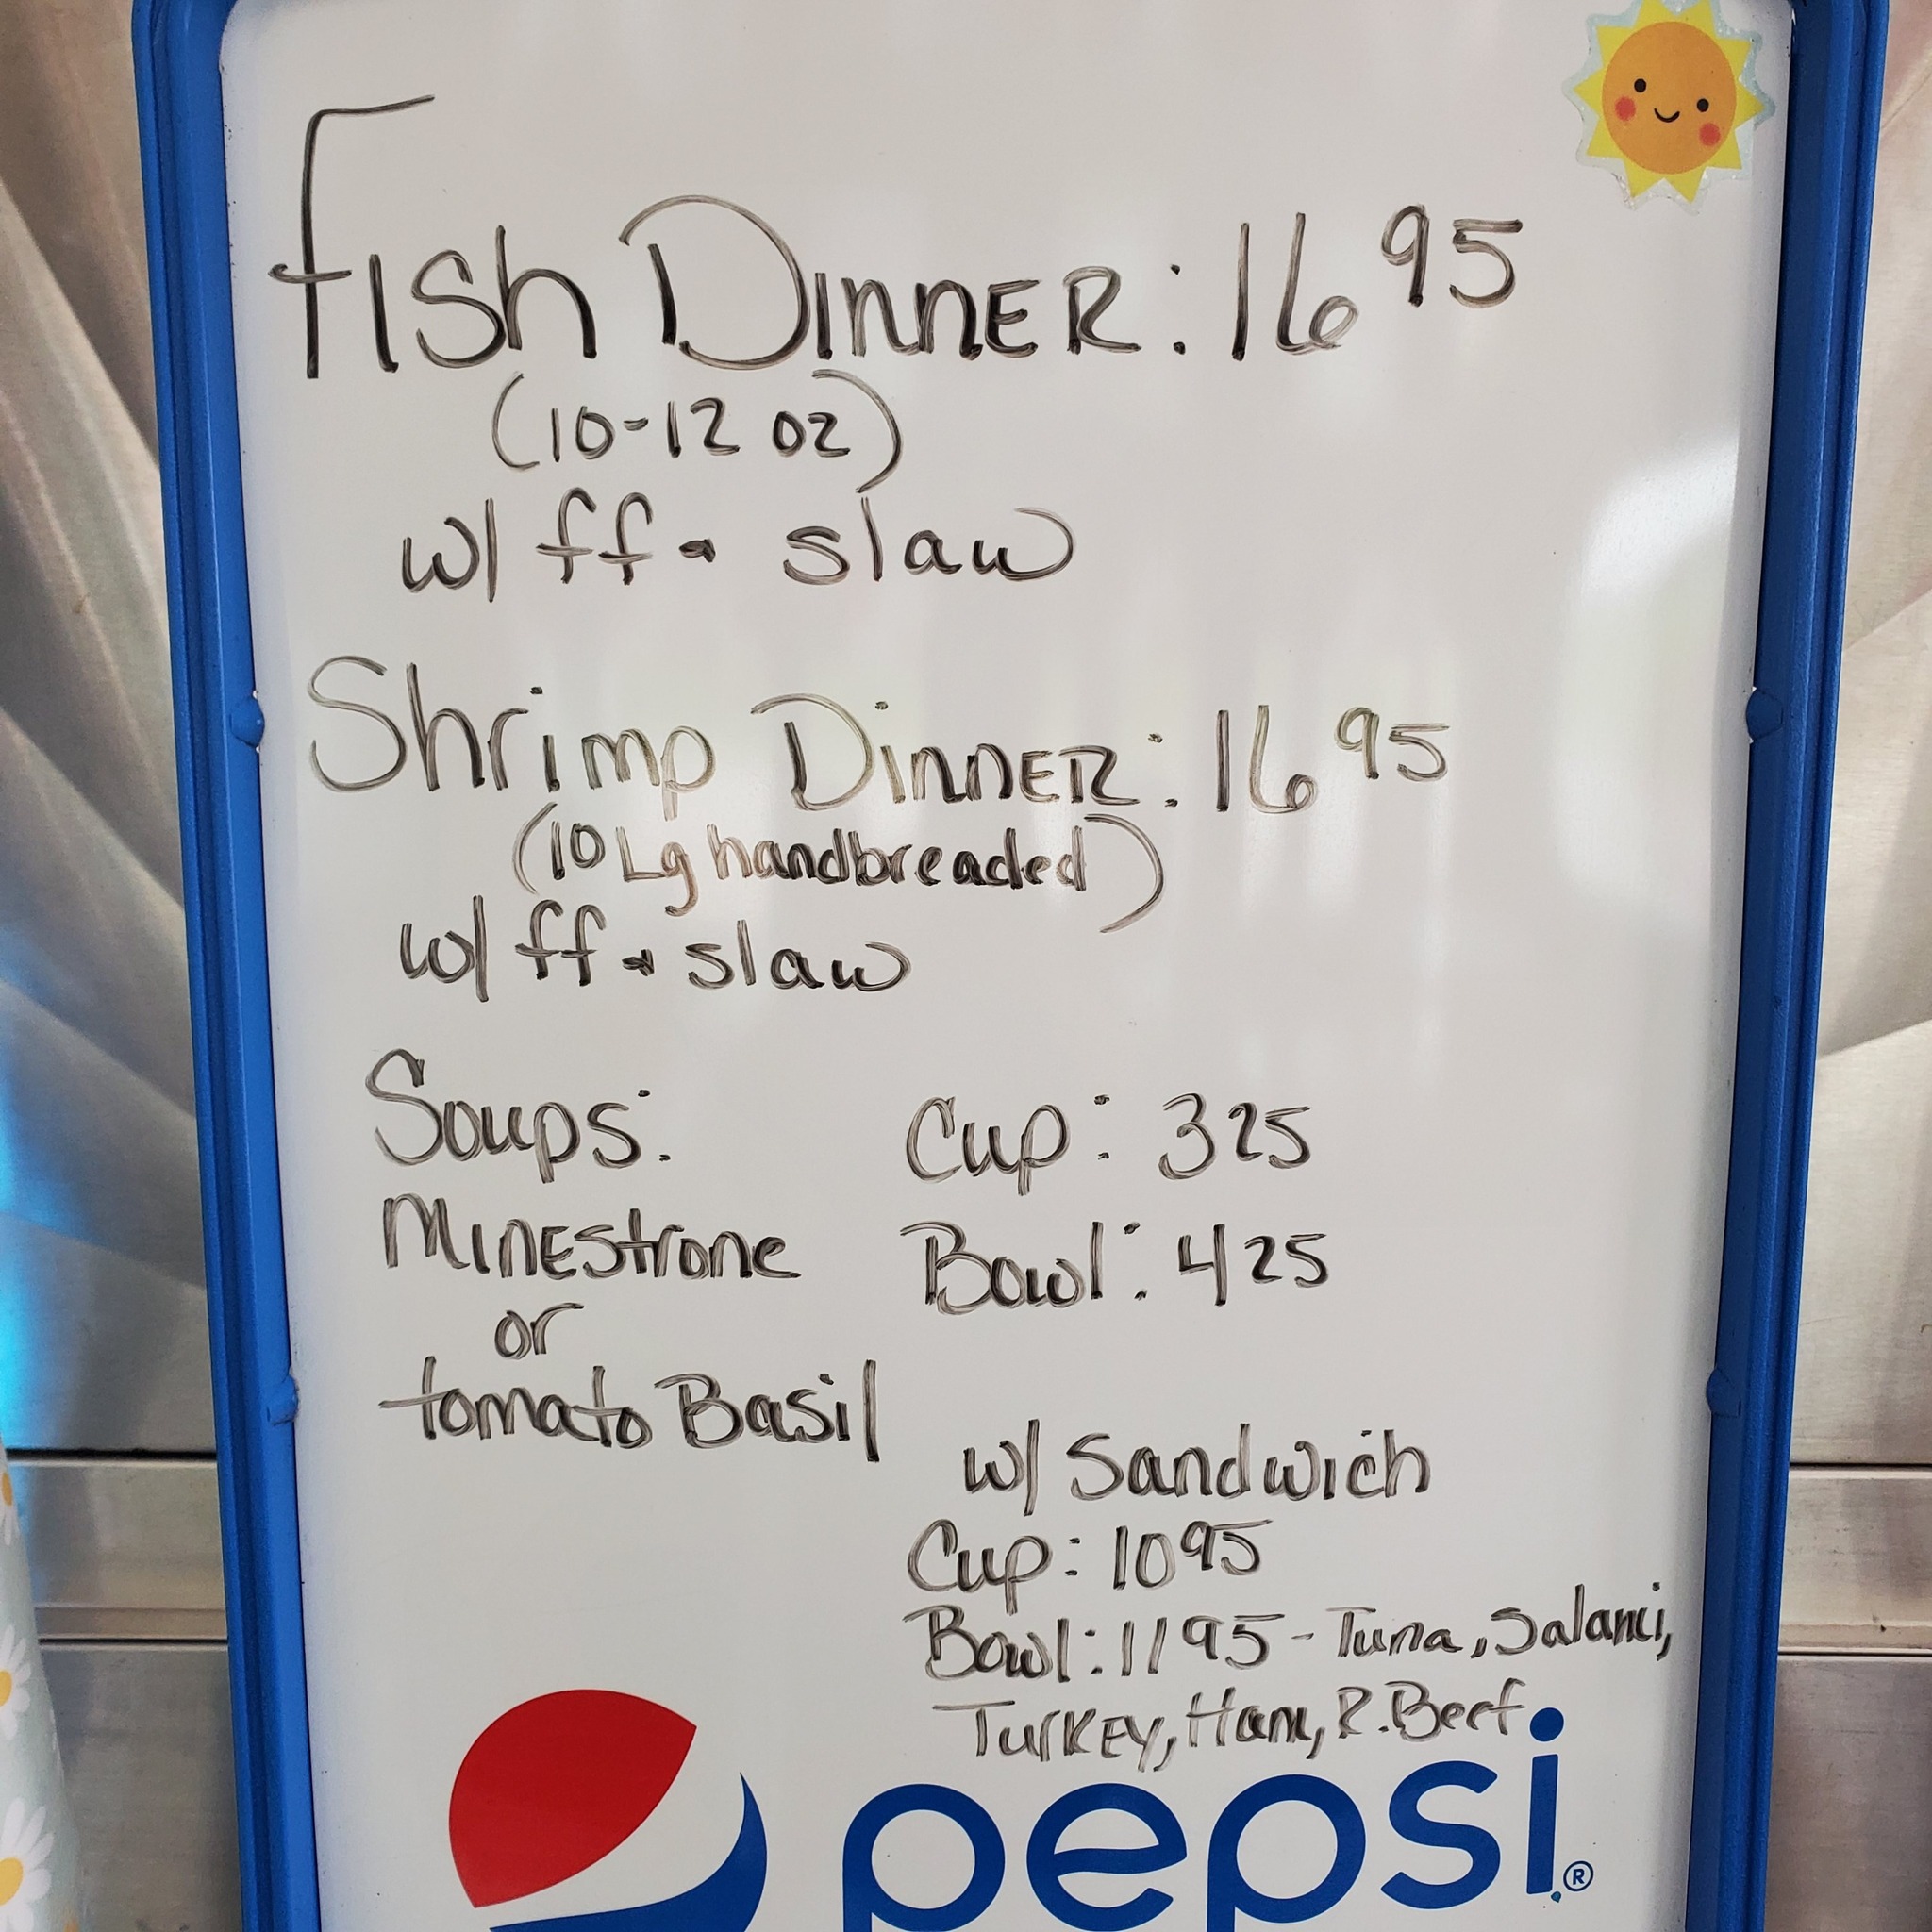 Fish DINNER: 16 95
(10-12 oz)
w/ ff & slaw
Shrimp DinnER: 16 95
(10 Lg handbreaded)
w/ ff & slaw
Soups:
MINEStrone
or
tomato Basil
Cup: 325
Bowl: 425
w/ Sandwich
Cup: 1095
Bowl: 1195 - Tuna, Salami,
TurKEY, Ham, R. Beef
pepsi®